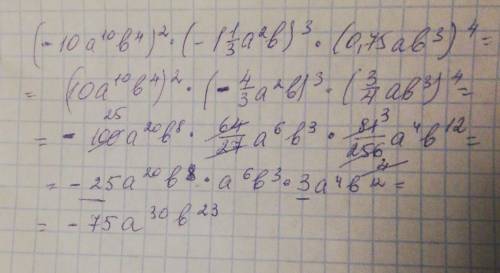 (-10a¹⁰b⁴)² · (-1 1/3 a²b)³ · (0,75ab³)⁴ =
= (10a¹⁰b⁴)² · (-4/3 a²b)³ · (3/4 ab³)⁴ =
= - 100 25 a²⁰b⁸ · 64/27 a⁶b³ · 81 3/256 4 a⁴b¹² =
= - 25a²⁰b⁸ · a⁶b³ · 3a⁴b¹² =
= - 75a³⁰b²³